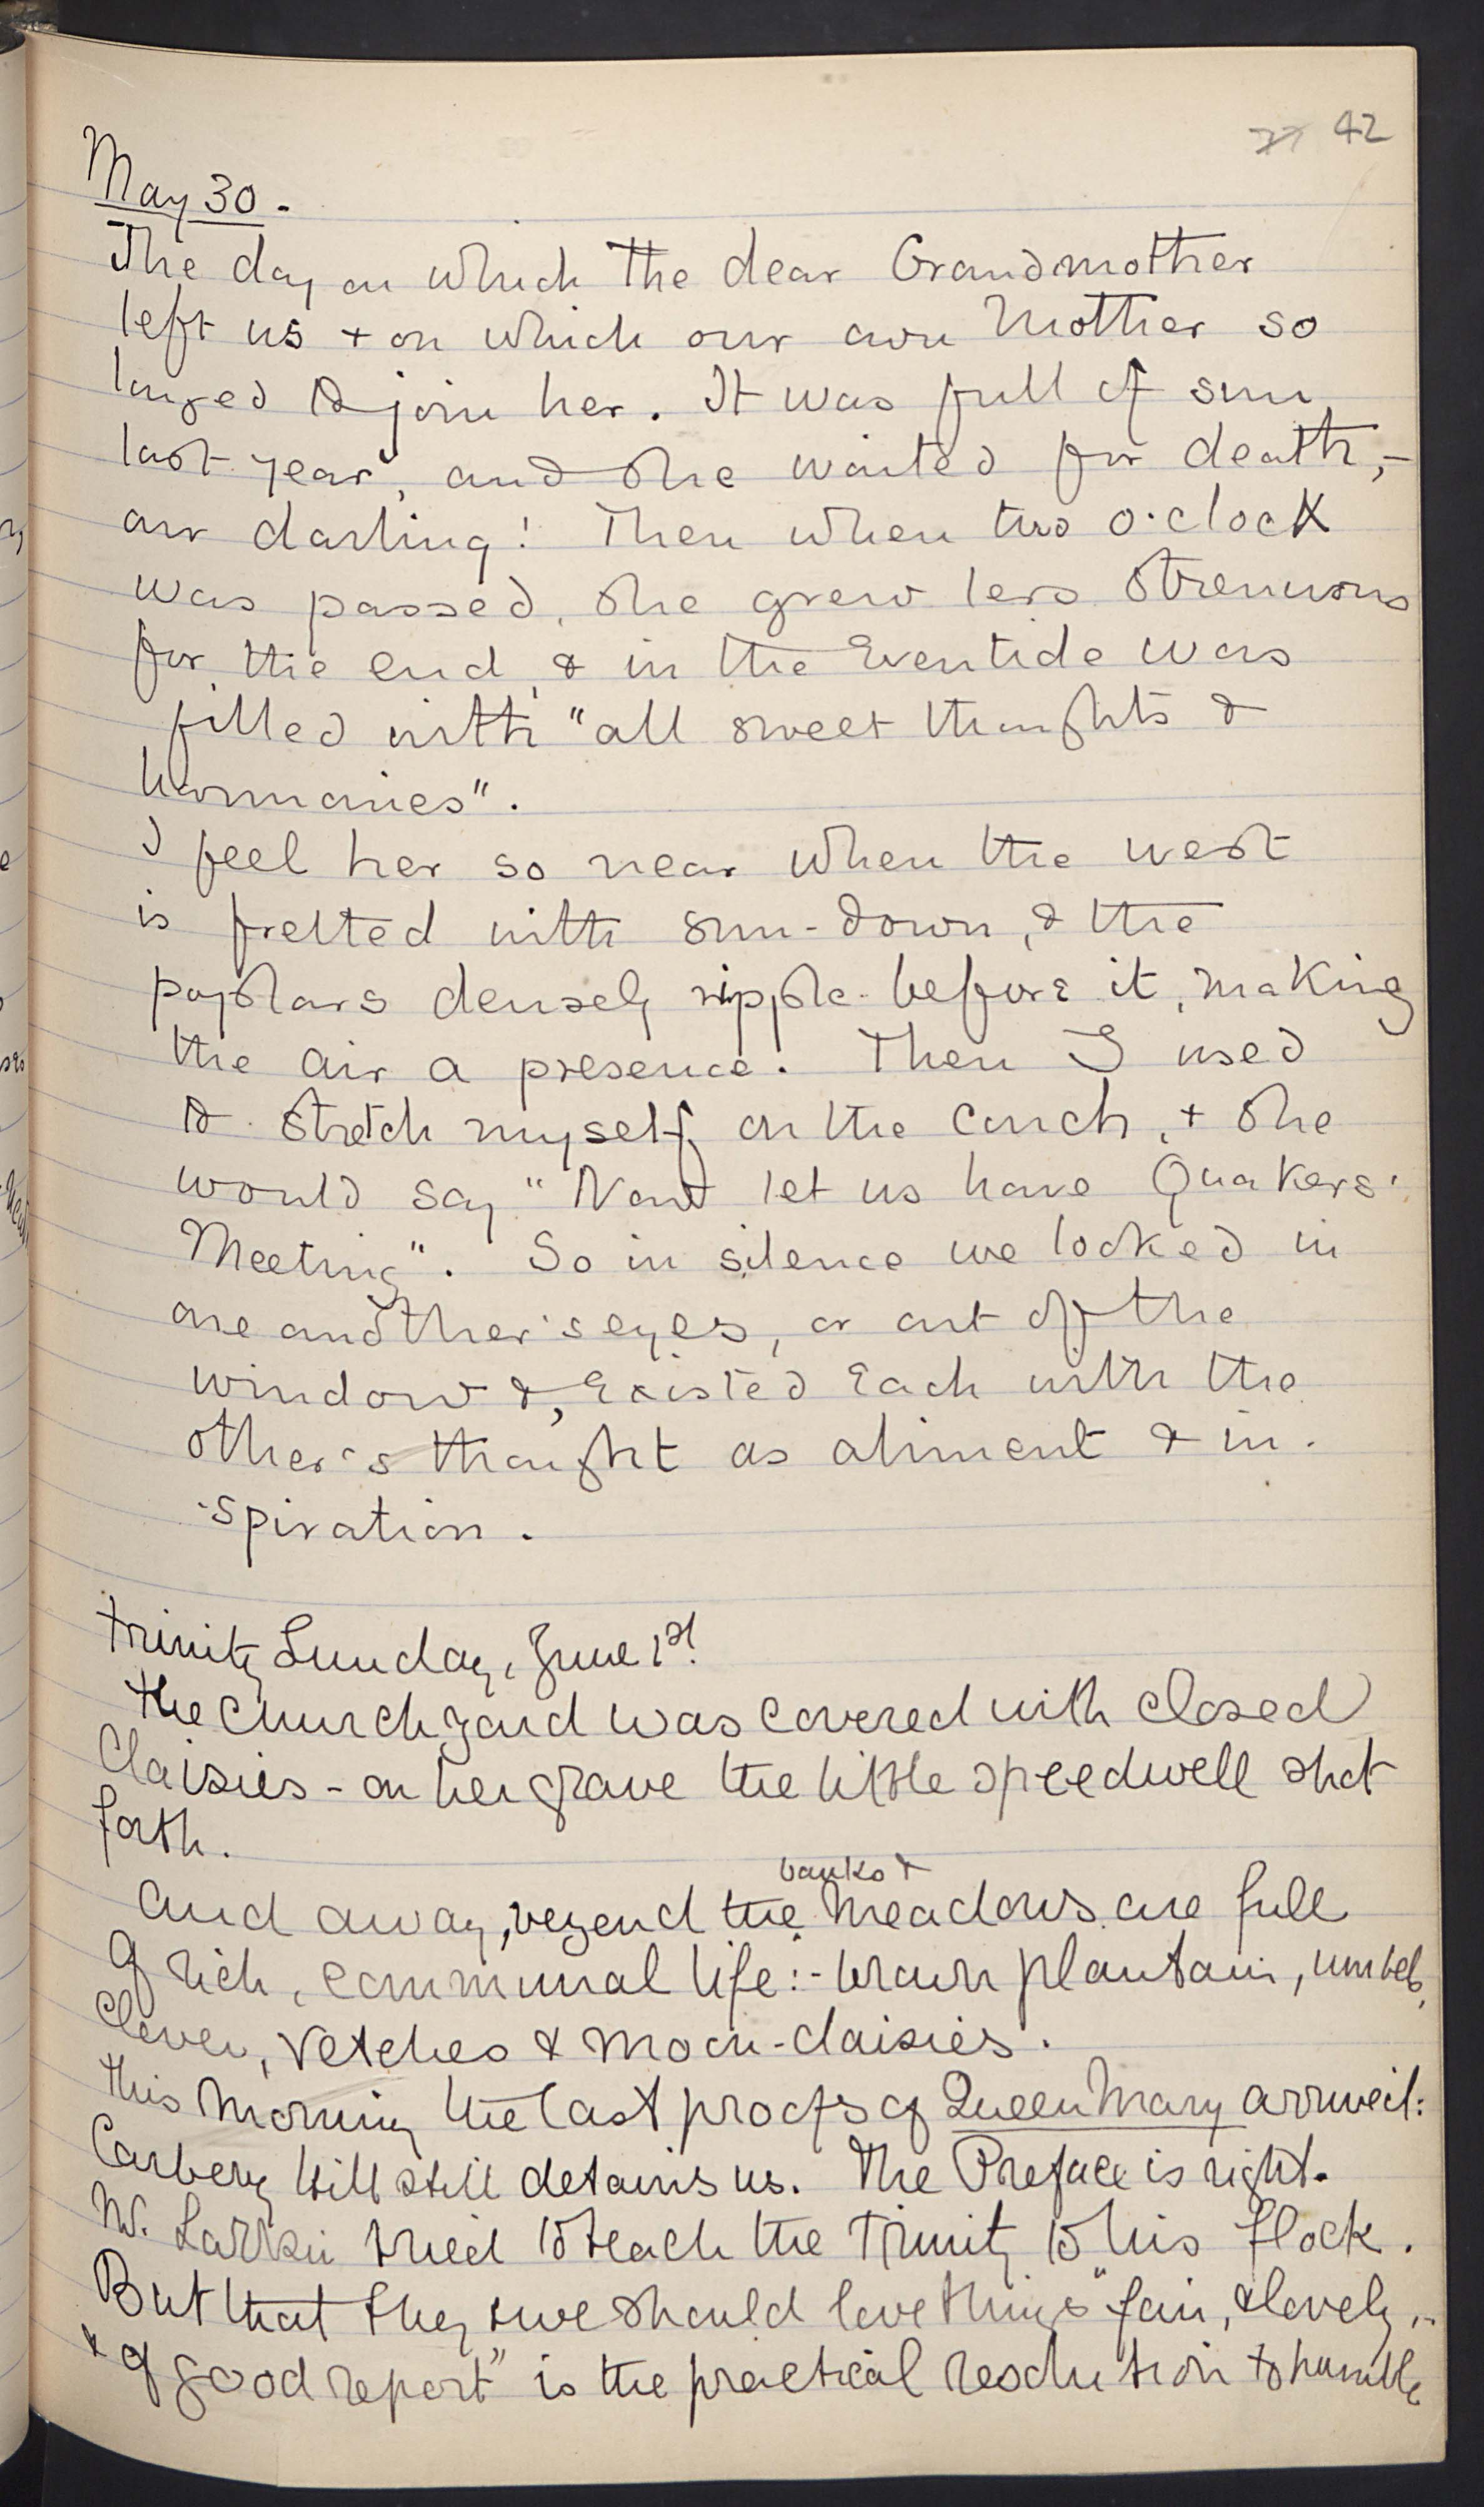 42
May 30.
The day on which the dear Grandmother
left us + on which our own Mother so
longed to join her. It was full of sun
last year, and she waited for death,-
our darling! Then when two o'clock
was passed, she grew less strenuous
for the end, & in the Eventide was
filled with "all sweet thoughts &
harmonies".
I feel her so near when the west
is fretted with sun-down, & the
poplars densely ripple before it, making
the air a presence. Then I used
to stretch myself on the couch, + she
would say "Now let us have Quakers'
Meeting". So in silence we looked in
one another's eyes, or out of the
window &, existed each with the
other's thought as aliment & in-
spiration.
Trinity Sunday, June 1st.
The Churchyard was covered with closed
daisies - on her grave the little speedwell shot
forth.
And away, beyond the banks & meadows are full
of rich, communal life:- brown plantain, umbels,
clover, vetches & moon-daisies.
This morning the last proofs of Queen Mary arrived:
Carbery Hill still detains us. The Preface is right.
Mr. Larkin tried to teach the Trinity to his flock.
But that they & we should love things "fair, & lovely,
& of good report" is the practical resolution to humble